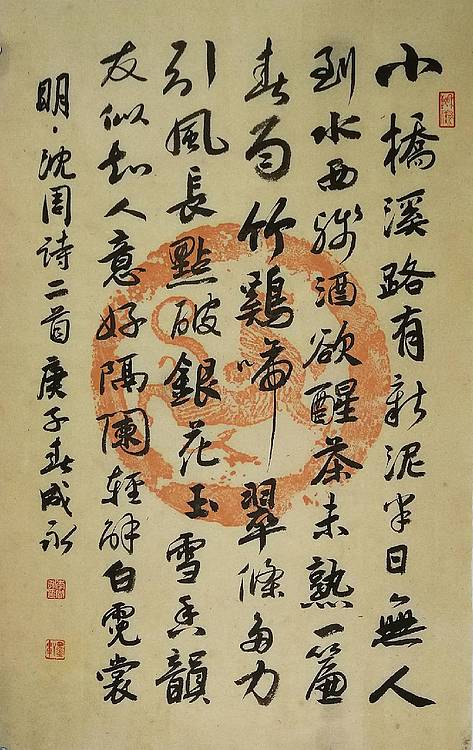 小橋溪路有新泥半日無人
到水西殘酒欲醒茶未熟一簾
春雨竹鷄啼翠條多力
引風長點破銀花玉雪香韻
友似知人意好隔闌輕解白霓裳
明·沈周詩二首庚子春成永